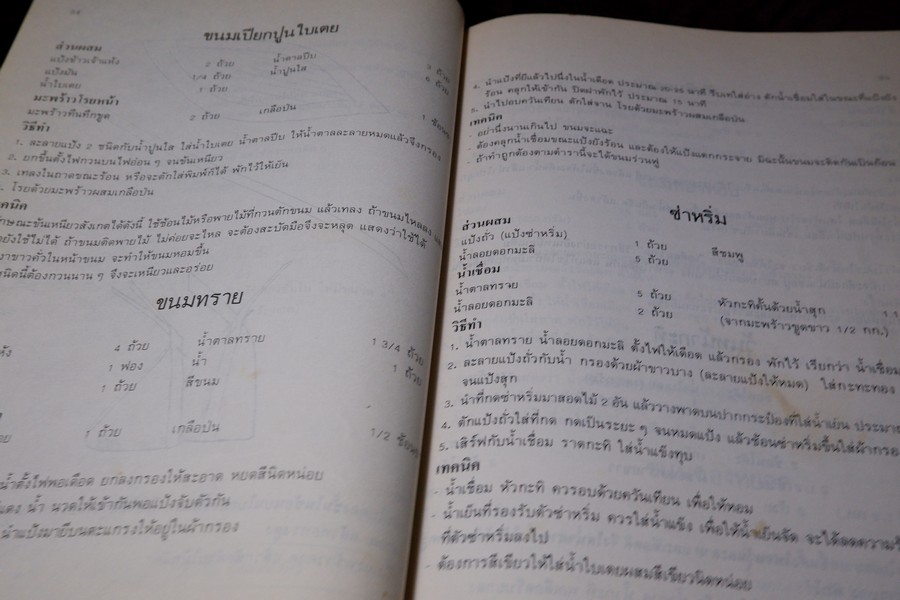 ขนมเปียกปูนใบเตย
ส่วนผสม
แป้งข้าวเจ้าแห้ง 2 ถ้วย น้ำตาลปีบ 3 ถ้วย
แป้งมัน 1/4 ถ้วย น้ำปูนใส 6 ถ้วย
น้ำใบเตย 1 ถ้วย
มะพร้าวโรยหน้า
มะพร้าวทึนทึกขูด 2 ถ้วย เกลือป่น 1
วิธีทำ
1. ละลายแป้ง 2 ชนิดกับน้ำปูนใส ใส่น้ำใบเตย น้ำตาลปีบ ให้น้ำตาลละลายหมดแล้วจึงกรอง
2. ยกขึ้นตั้งไฟกวนบนไฟอ่อน ๆ จนข้นเหนียว
3. เทลงในถาดขณะร้อน หรือจะตักใส่พิมพ์ก็ได้ พักไว้ให้เย็น
โรยด้วยมะพร้าวผสมเกลือป่น
คนิค
ษณะข้นเหนียวสังเกตได้ดังนี้ ใช้ช้อนไม้หรือพายไม้ที่กวนตักขนม แล้วเทลง ถ้าขนมไหลลง
ยังใช้ไม่ได้ ถ้าขนมติดพายไม้ ไม่ค่อยจะไหล จะต้องสะบัดมือจึงจะหลุด แสดงว่าใช้ได้
าขาวคั่วในหน้าขนม จะทำให้ขนมหอมขึ้น
นิดนี้ต้องกวนนาน ๆ จึงจะเหนียวและอร่อย
ขนมทราย
ห้ง 4 ถ้วย น้ำตาลทราย 1 3/4 ถ้วย
1 ฟอง น้ำ 1 ถ้วย
1 ถ้วย สีขนม
1 ถ้วย เกลือป่น 1/2 ช้อน
น้ำตั้งไฟพอเดือด ยกลงกรองให้สะอาด หยดสีนิดหน่อย
แดง น้ำ นวดให้เข้ากันพอแป้งจับตัวกัน
นำแป้งมายีบนตะแกรงให้อยู่ในผ้ากรอง
4. นำแป้งที่ยีแล้วไปนึ่งในน้ำเดือด ประมาณ 20-25 นาที รีบเทใส่อ่าง ตักน้ำเชื่อมใส่ในขณะที่แป้งยัง
ร้อน คลุกให้เข้ากัน ปิดฝาพักไว้ ประมาณ 15 นาที
5. นำไปอบควันเทียน ตักใส่จาน โรยด้วยมะพร้าวผสมเกลือป่น
เทคนิค
- อย่านึ่งนานเกินไป ขนมจะแฉะ
- ต้องคลุกน้ำเชื่อมขณะแป้งยังร้อน และต้องให้แป้งแตกกระจาย มิฉะนั้นขนมจะติดกันเป็นก้อน
- ถ้าทำถูกต้องตามตำรานี้จะได้ขนมร่วนฟู
ซ่าหริ่ม
ส่วนผสม
แป้งถั่ว (แป้งซ่าหริ่ม) 1 ถ้วย สีชมพู
น้ำลอยดอกมะลิ 5 ถ้วย
น้ำเชื่อม
น้ำตาลทราย 5 ถ้วย หัวกะทิคั้นด้วยน้ำสุก 1 1
น้ำลอยดอกมะลิ 2 ถ้วย (จากมะพร้าวขูดขาว 1/2 กก.)
วิธีทำ
1. น้ำตาลทราย น้ำลอยดอกมะลิ ตั้งไฟให้เดือด แล้วกรอง พักไว้ เรียกว่า น้ำเชื่อม
2. ละลายแป้งถั่วกับน้ำ กรองด้วยผ้าขาวบาง (ละลายแป้งให้หมด) ใส่กะทะทอง
จนแป้งสุก
3. นำที่กดซ่าหริ่มมาสอดไม้ 2 อัน แล้ววางพาดบนปากกระป๋องที่ใส่น้ำเย็น ประมาณ
4. ตักแป้งถั่วใส่ที่กด กดเป็นระยะ ๆ จนหมดแป้ง แล้วช้อนซ่าหริ่มขึ้นใส่ผ้ากรอง
5. เสิร์ฟกับน้ำเชื่อม ราดกะทิ ใส่น้ำแข็งทุบ
เทคนิค
- น้ำเชื่อม หัวกะทิ ควรอบด้วยควันเทียน เพื่อให้หอม
- น้ำเย็นที่รองรับตัวซ่าหริ่ม ควรใส่น้ำแข็ง เพื่อให้น้ำเย็นจัด จะได้ลดความ
ที่ตัวซ่าหริ่มลงไป
- ต้องการสีเขียวให้ใส่น้ำใบเตยผสมสีเขียวนิดหน่อย